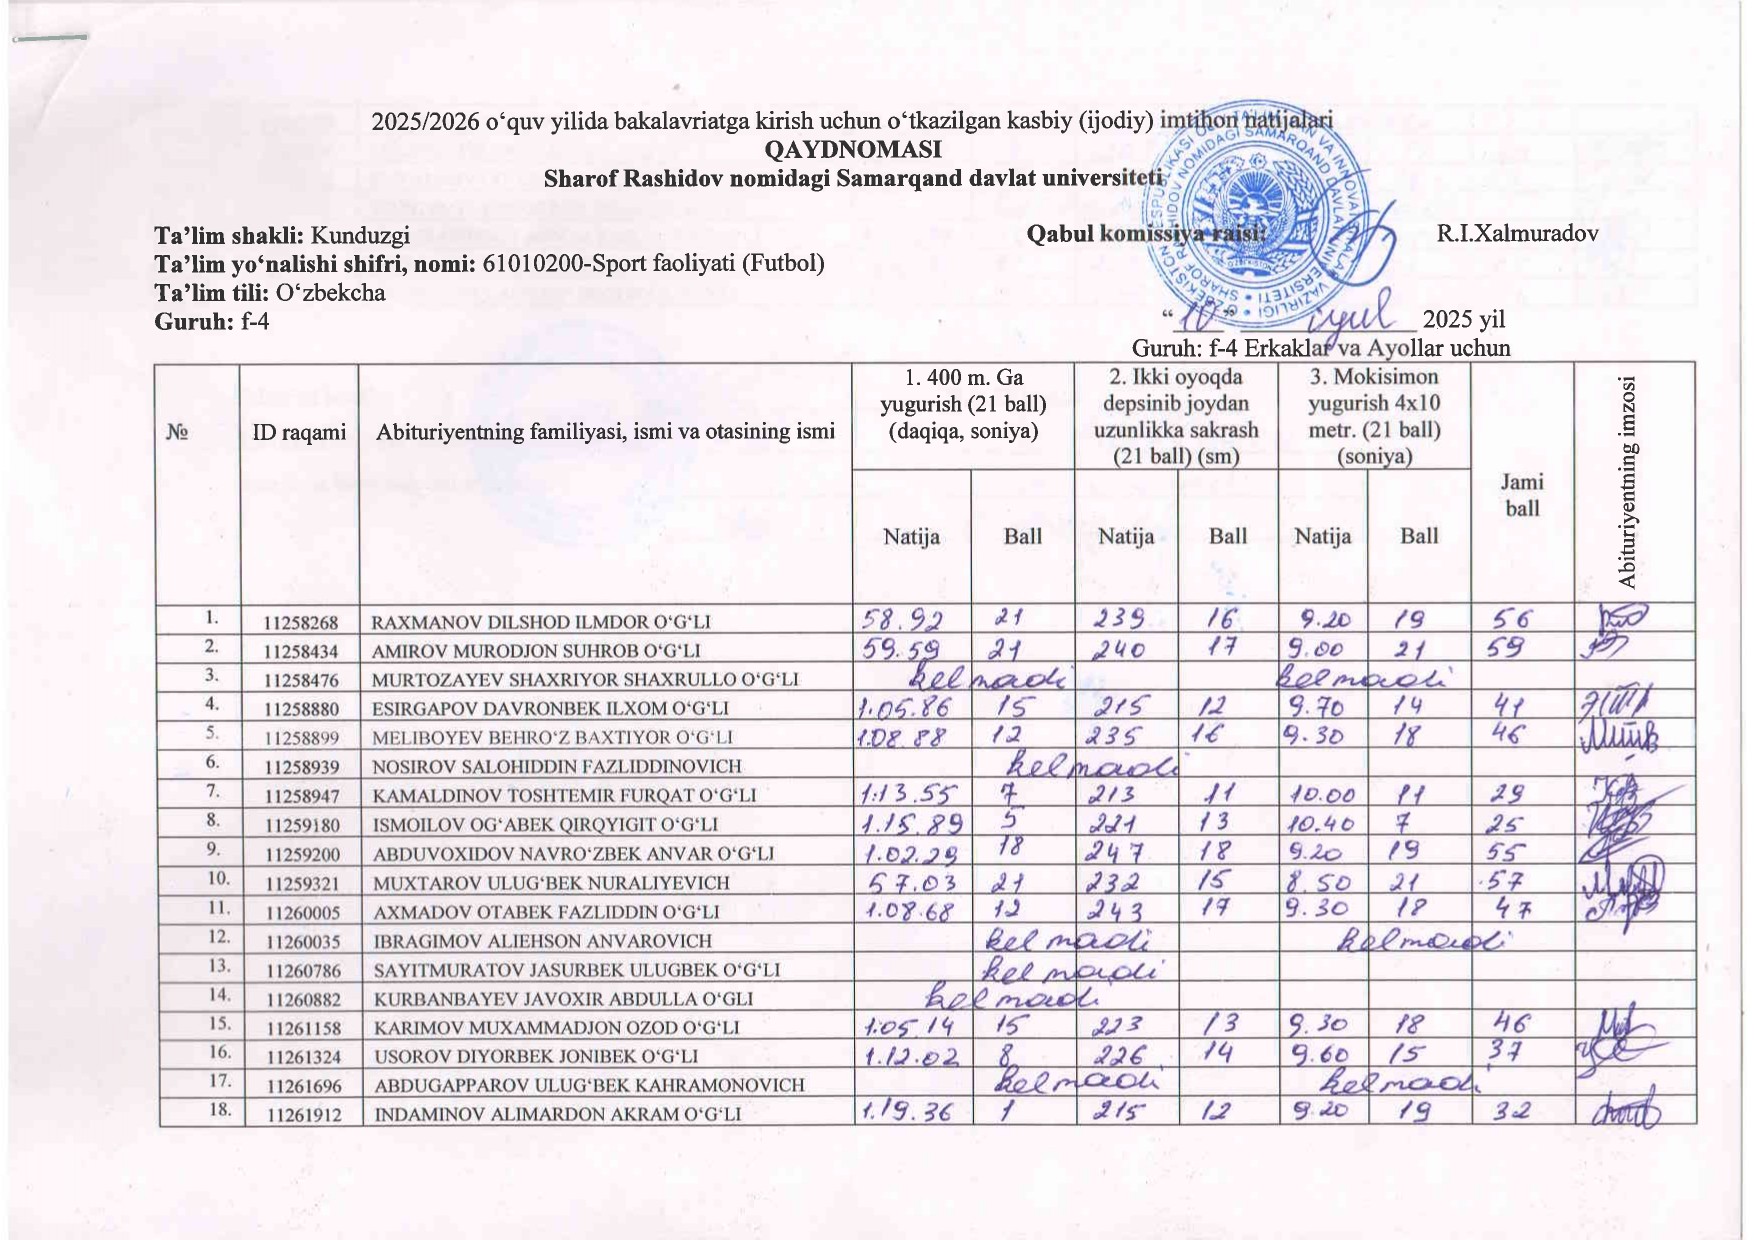 2025/2026 o‘quv yilida bakalavriatga kirish uchun o‘tkazilgan kasbiy (ijodiy) imtihon natijalari
QAYDNOMASI
Sharof Rashidov nomidagi Samarqand davlat universiteti
Ta’lim shakli: Kunduzgi
Qabul komissiya raisi: R.I.Xalmuradov
Ta’lim yo‘nalishi shifri, nomi: 61010200-Sport faoliyati (Futbol)
Ta’lim tili: O‘zbekcha
Guruh: f-4
“ 10 “ iyul 2025 yil
Guruh: f-4 Erkaklar va Ayollar uchun
№ ID raqami Abituriyentning familiyasi, ismi va otasining ismi
1. 400 m. Ga yugurish (21 ball) (daqiqa, soniya)
2. Ikki oyoqda depsinib joydan uzunlikka sakrash (21 ball) (sm)
3. Mokisimon yugurish 4x10 metr. (21 ball) (soniya)
Jami ball
Abituriyentning imzosi
Natija Ball Natija Ball Natija Ball
1. 11258268 RAXMANOV DILSHOD ILMDOR O‘G‘LI 58.92 21 239 16 9.20 19 56
2. 11258434 AMIROV MURODJON SUHROB O‘G‘LI 59.59 21 240 17 9.00 21 59
3. 11258476 MURTOZAYEV SHAXRIYOR SHAXRULLO O‘G‘LI kelmadi kelmadi
4. 11258880 ESIRGAPOV DAVRONBEK ILXOM O‘G‘LI 1.05.86 15 215 12 9.70 14 41
5. 11258899 MELIBOYEV BEHRO‘Z BAXTIYOR O‘G‘LI 1.08.88 12 235 16 9.30 18 46
6. 11258939 NOSIROV SALOHIDDIN FAZLIDDINOVICH kelmadi
7. 11258947 KAMALDINOV TOSHTEMIR FURQAT O‘G‘LI 1.13.55 7 213 11 10.00 11 29
8. 11259180 ISMOILOV OG‘ABEK QIRQYIGIT O‘G‘LI 1.15.89 5 221 13 10.40 7 25
9. 11259200 ABDUVOXIDOV NAVRO‘ZBEK ANVAR O‘G‘LI 1.02.29 18 247 18 9.20 19 55
10. 11259321 MUXTAROV ULUG‘BEK NURALIYEVICH 57.03 21 232 15 8.50 21 57
11. 11260005 AXMADOV OTABEK FAZLIDDIN O‘G‘LI 1.08.68 12 243 17 9.30 18 47
12. 11260035 IBRAGIMOV ALIEHSON ANVAROVICH kelmadi kelmadi
13. 11260786 SAYITMURATOV JASURBEK ULUGBEK O‘G‘LI kelmadi
14. 11260882 KURBANBAYEV JAVOXIR ABDULLA O‘GLI kelmadi
15. 11261158 KARIMOV MUXAMMADJON OZOD O‘G‘LI 1.05.14 15 223 13 9.30 18 46
16. 11261324 USOROV DIYORBEK JONIBEK O‘G‘LI 1.12.02 8 226 14 9.60 15 37
17. 11261696 ABDUGAPPAROV ULUG‘BEK KAHRAMONOVICH kelmadi kelmadi
18. 11261912 INDAMINOV ALIMARDON AKRAM O‘G‘LI 1.19.36 1 215 12 9.20 19 32